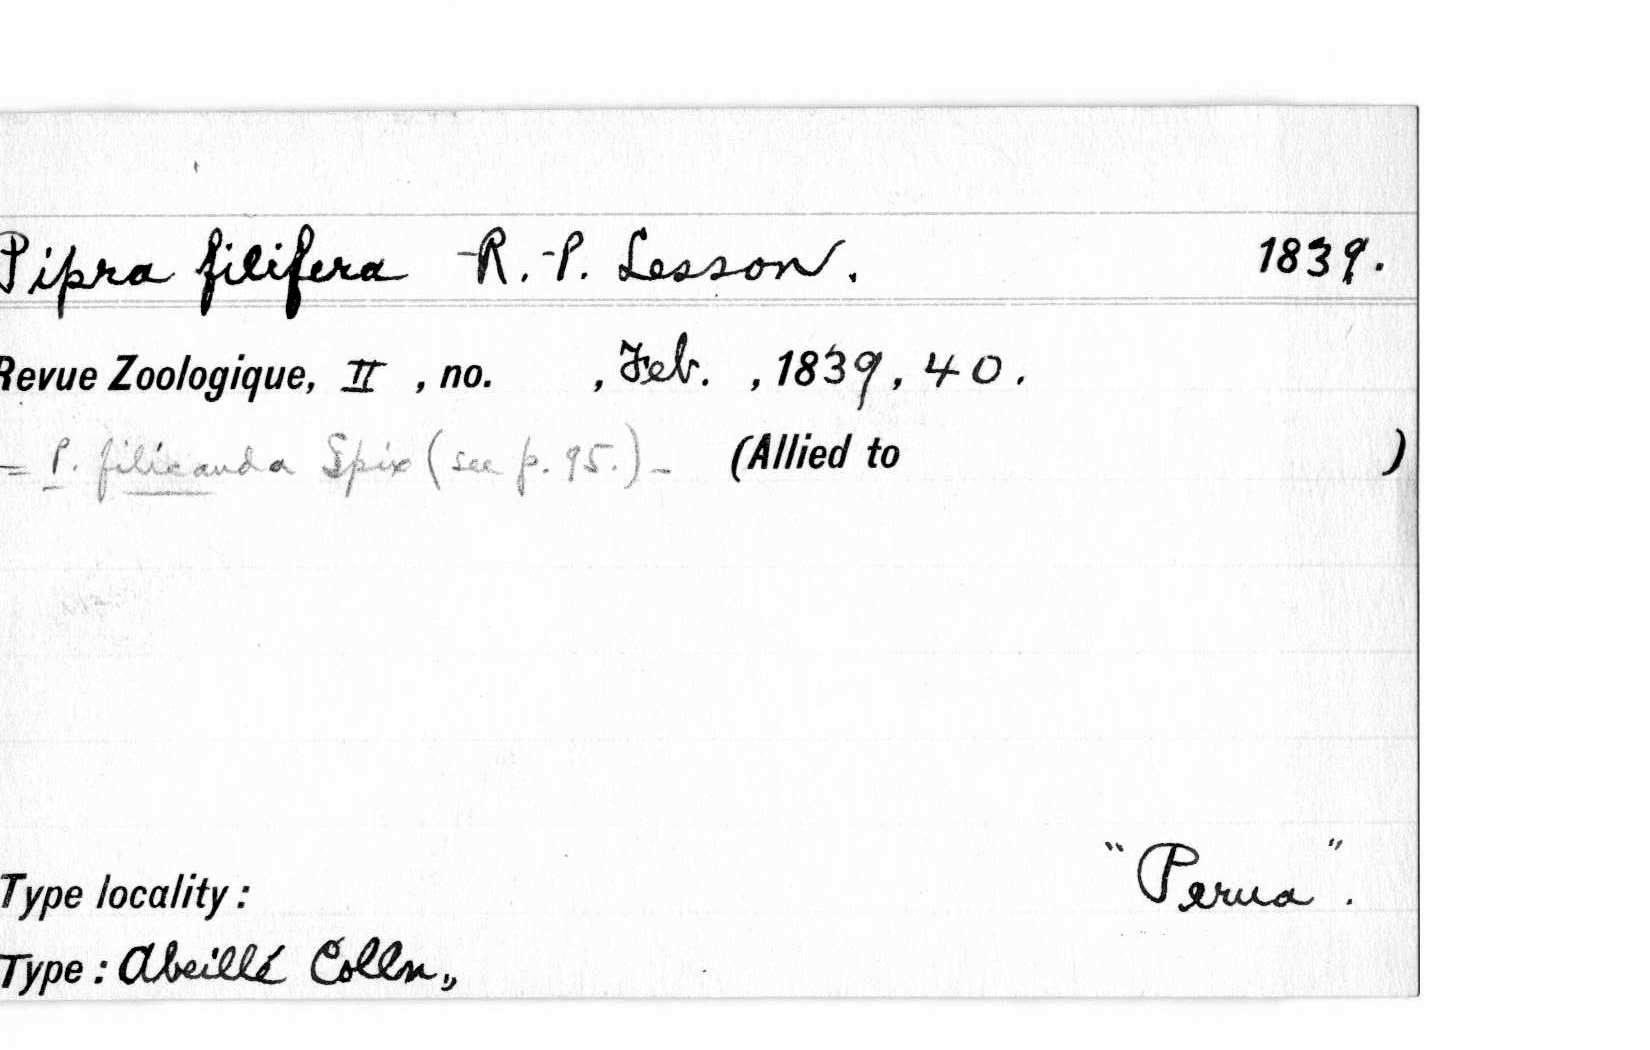 Pipra filifera R.-P. Lesson. 1839.
Revue Zoologique, II , no. , Feb. , 1839, 40.
= P. filicauda Spix (see p. 95.) - (Allied to )
"Perua".
Type locality:
Type: Abeillé Colln.,